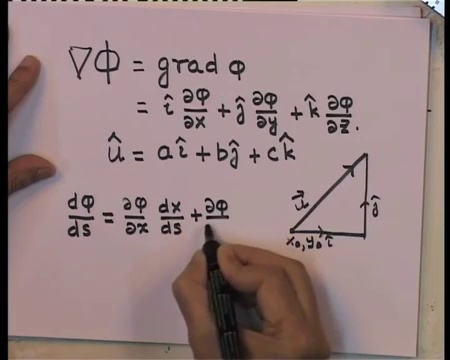 ∇Φ = grad φ
= î ∂φ/∂x + ĵ ∂φ/∂y + k̂ ∂φ/∂z.
û = aî + bĵ + ck̂
dφ/ds = ∂φ/∂x dx/ds + ∂φ
u⃗
ĵ
x₀, y₀ î